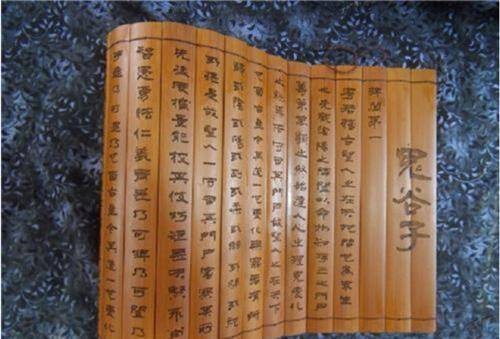 鬼谷子
捭闔第一
若稽古聖人之在天地間也為眾生
之先觀陰陽之開闔以命物知存亡之門戶
籌策萬類之終始達人心之理見變化
之朕焉而守司其門戶故聖人之在天下
也自古至今其道一也變化無窮各有所
歸或陰或陽或柔或剛或開或閉或弛
或張是故聖人一守司其門戶審察其所
先後度權量能校其伎巧短長夫賢不肖
智愚勇怯仁義有差乃可捭乃可闔乃
乃可
也自古至今其道一也變化